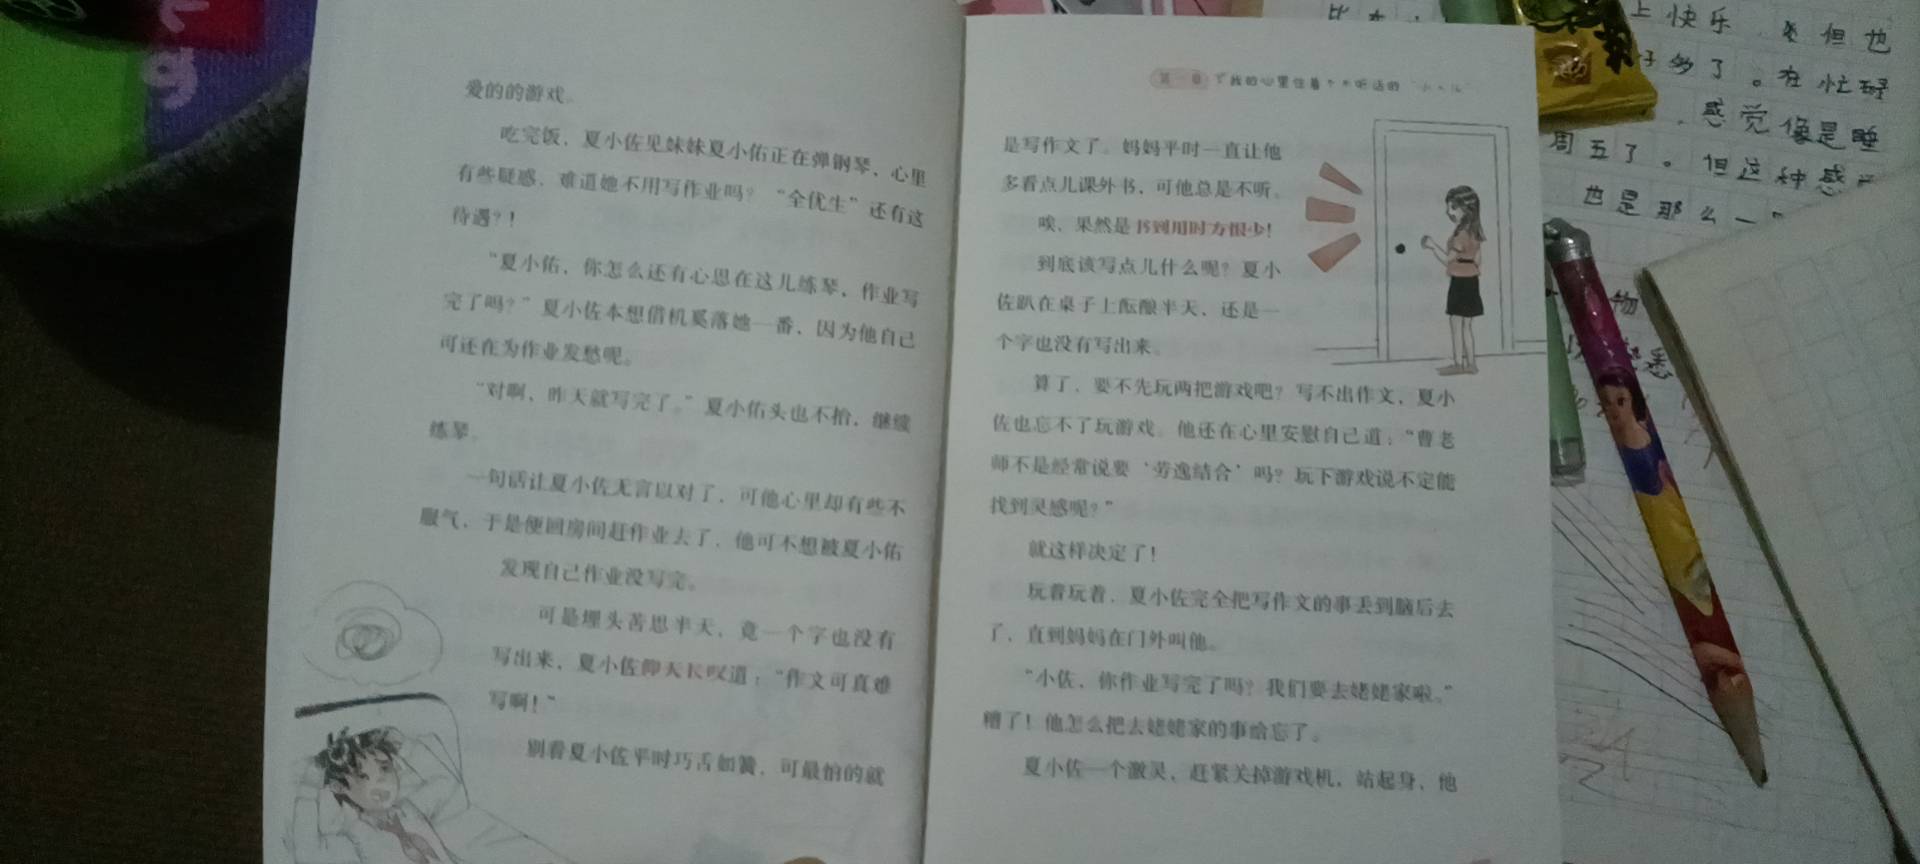 爱的的游戏。
吃完饭，夏小佐见妹妹夏小佑正在弹钢琴，心里
有些疑惑，难道她不用写作业吗？“全优生”还有这
待遇？！
“夏小佑，你怎么还有心思在这儿练琴，作业写
完了吗？”夏小佐本想借机奚落她一番，因为他自己
可还在为作业发愁呢。
“对啊，昨天就写完了。”夏小佑头也不抬，继续
练琴。
一句话让夏小佐无言以对了，可他心里却有些不
服气，于是便回房间赶作业去了，他可不想被夏小佑
发现自己作业没写完。
可是埋头苦思半天，竟一个字也没有
写出来，夏小佐仰天长叹道：“作文可真难
写啊！”
别看夏小佐平时巧舌如簧，可最怕的就
第一章 我的心里住着个不听话的
是写作文了。妈妈平时一直让他
多看点儿课外书，可他总是不听。
唉，果然是书到用时方恨少！
到底该写点儿什么呢？夏小
佐趴在桌子上酝酿半天，还是一
个字也没有写出来。
算了，要不先玩两把游戏吧？写不出作文，夏小
佐也忘不了玩游戏。他还在心里安慰自己道：“曹老
师不是经常说要‘劳逸结合’吗？玩下游戏说不定能
找到灵感呢？”
就这样决定了！
玩着玩着，夏小佐完全把写作文的事丢到脑后去
了，直到妈妈在门外叫他。
“小佐，你作业写完了吗？我们要去姥姥家啦。”
糟了！他怎么把去姥姥家的事给忘了。
夏小佐一个激灵，赶紧关掉游戏机，站起身，他
上快乐，但也
够了。在忙碌
感觉像是睡
周五了。但这种感
也是那么一
物